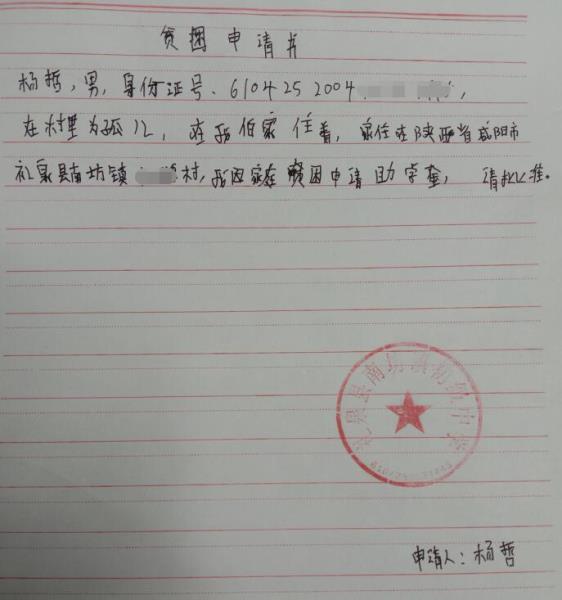 贫困申请书
杨哲，男，身份证号、610425 2004
在村里为孤儿，在我伯家住着，家住在陕西省咸阳市
礼泉县南坊镇村，我因家在贫困申请助学金，请批准。
礼泉县南坊镇初级中学
申请人：杨哲